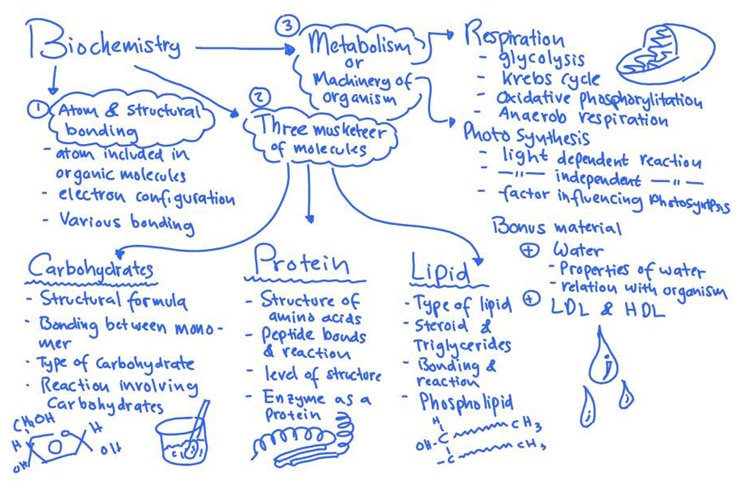 Biochemistry
① Atom & Structural
bonding
- atom included in
organic molecules
- electron configuration
- Various bonding
②
Three musketeer
of molecules
③
Metabolism
or
Machinery of
organism
Respiration
- glycolysis
- Krebs cycle
- Oxidative phosphorylitation
- Anaerob respiration
Photo Synthesis
- light dependent reaction
- —〃— independent —〃—
- factor influencing Photosynthesis
Bonus material
⊕ Water
- Properties of water
- relation with organism
⊕ LDL & HDL
Carbohydrates
- Structural formula
- Bonding between mono-
mer
- Type of Carbohydrate
- Reaction involving
Carbohydrates
CH2OH
H
H
OH
OH
Protein
- Structure of
amino acids
- Peptide bonds
& reaction
- level of structure
- Enzyme as a
Protein
Lipid
- Type of lipid
- Steroid &
Triglycerides
- Bonding &
reaction
- Phospholipid
H
OH-C CH3
-C CH3